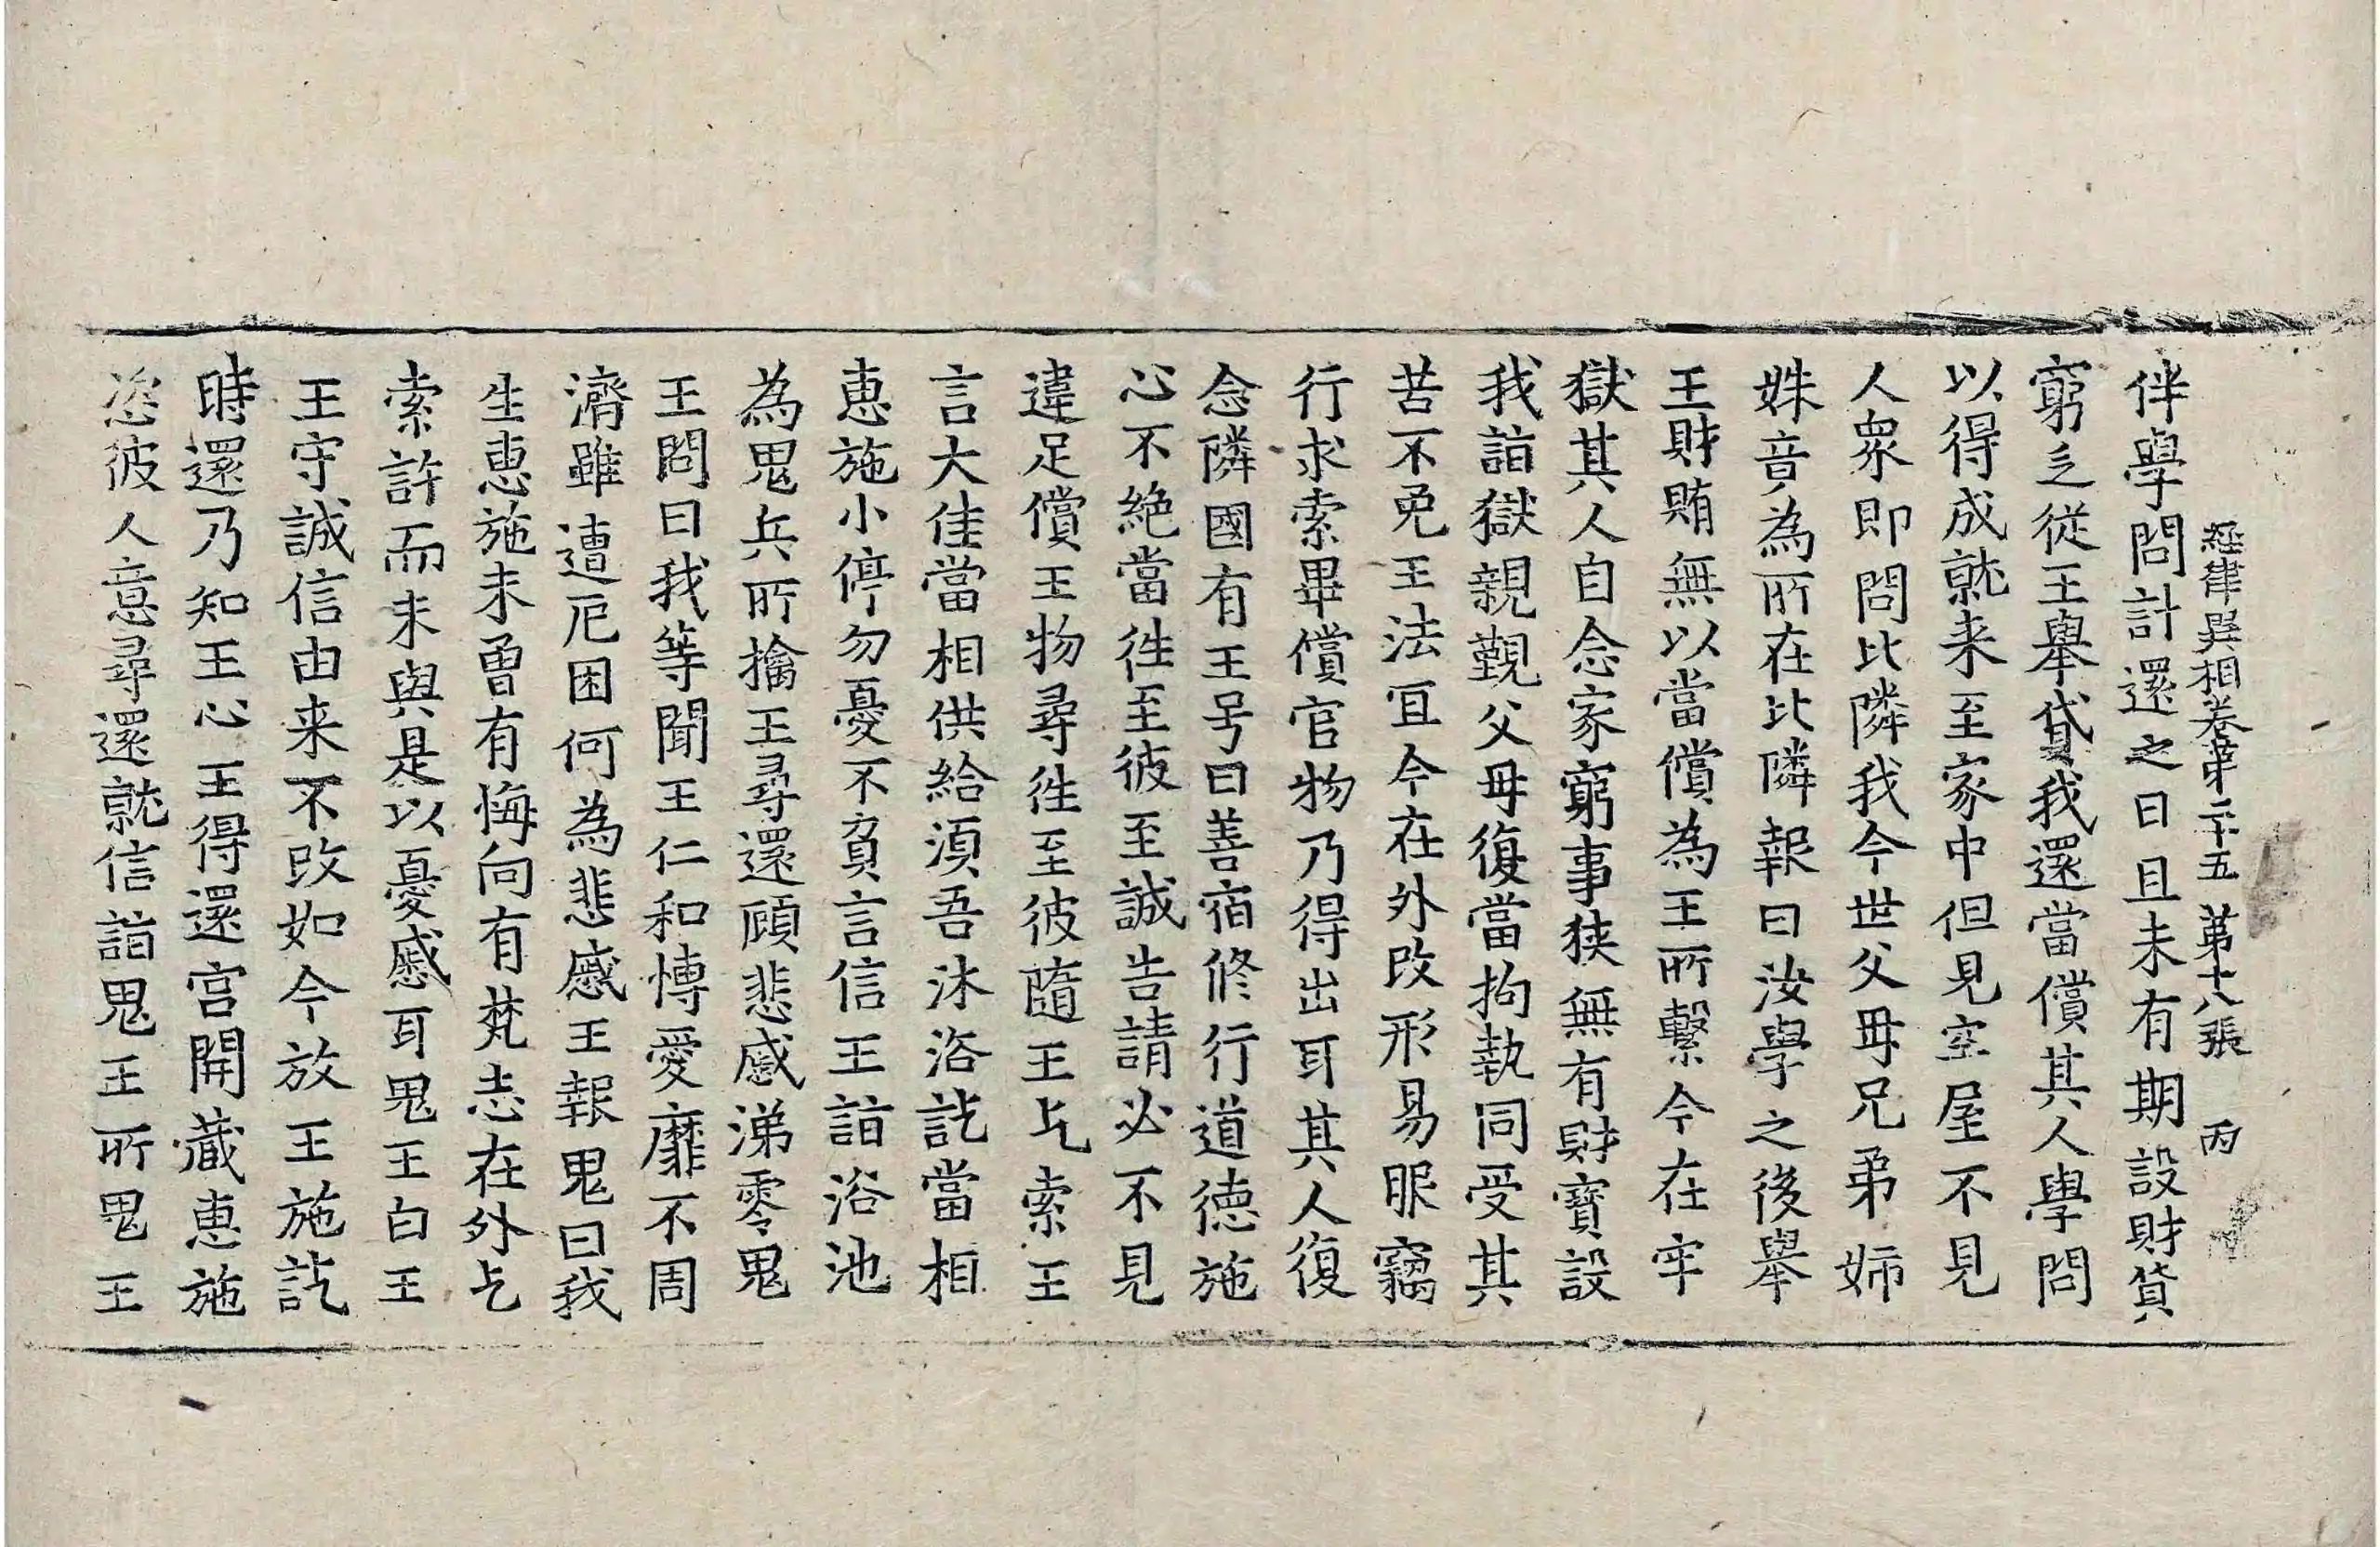 經律異相卷第二十五 第十八張 丙
伴學問計還之日且未有期設財貨
窮乏從王舉貸我還當償其人學問
以得成就来至家中但見空屋不見
人衆即問比隣我今世父母兄弟姉
姝音為所在比隣報曰汝學之後舉
王財賄無以當償為王所繫今在牢
獄其人自念家窮事狹無有財寶設
我詣獄親覲父母復當拘執同受其
苦不免王法宜今在外改形易服竊
行求索畢償官物乃得出耳其人復
念隣國有王号曰善宿修行道德施
心不絶當徃至彼至誠告請必不見
違足償王物尋徃至彼隨王乞索王
言大佳當相供給湏吾沐浴訖當相
惠施小停勿憂不負言信王詣浴池
為鬼兵所擒王尋還顧悲慼涕零鬼
王問曰我等聞王仁和慱愛靡不周
濟雖遭厄困何為悲慼王報鬼曰我
生惠施未曾有悔向有梵志在外乞
索許而未與是以憂慼耳鬼王白王
王守誠信由来不改如今放王施訖
時還乃知王心王得還宮開藏惠施
恣彼人意尋還就信詣鬼王所鬼王